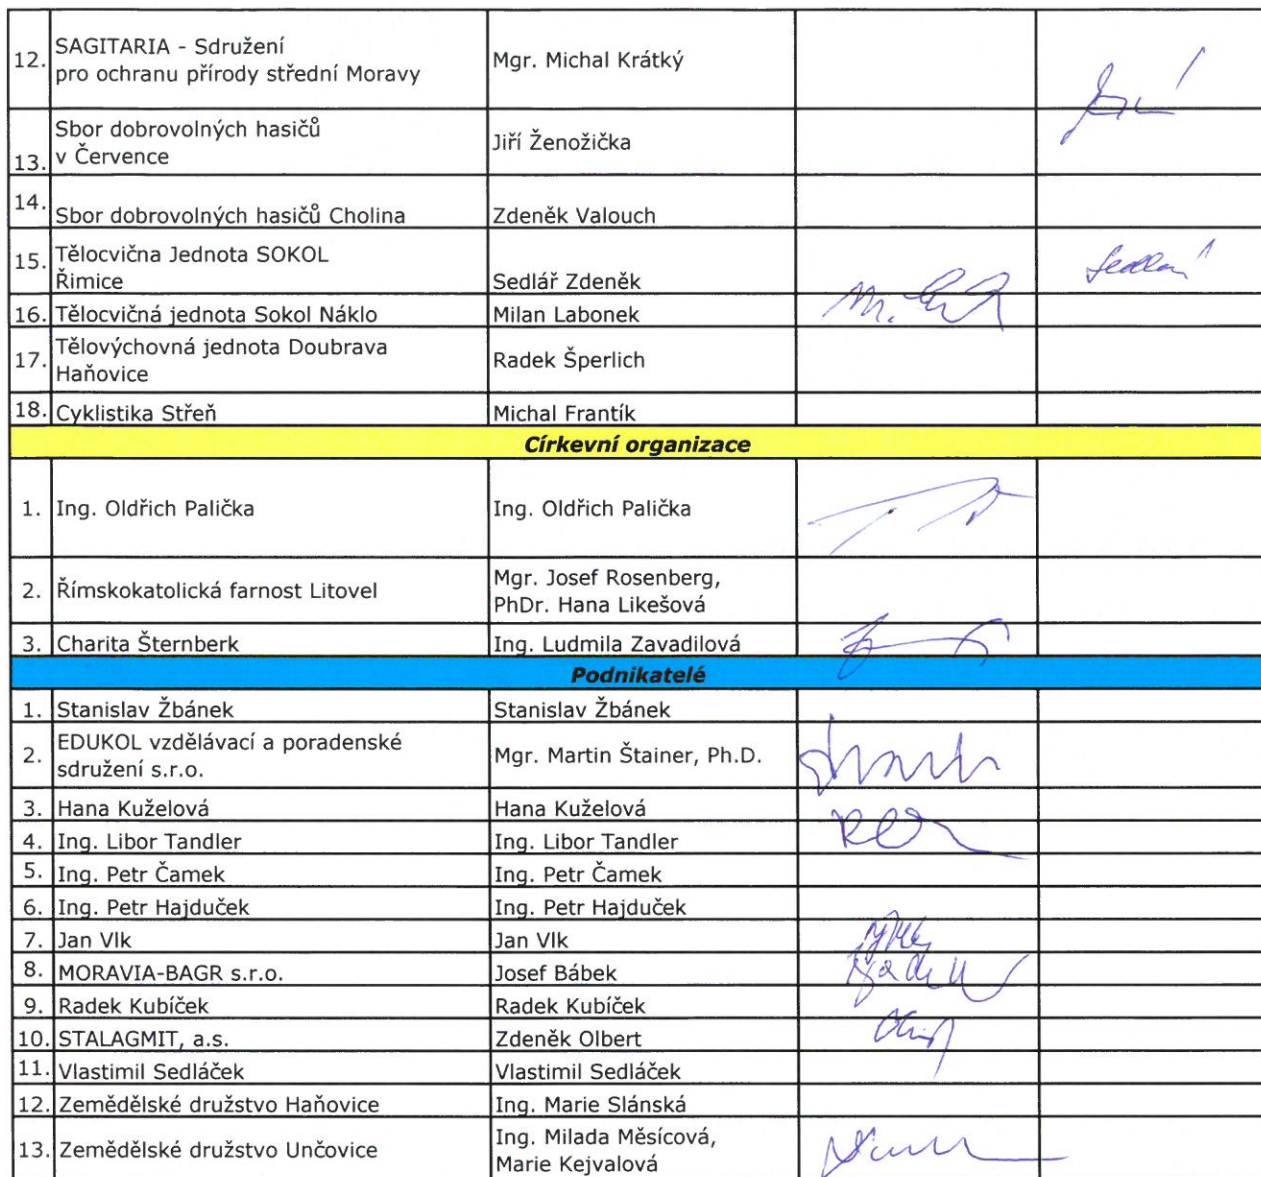 12. SAGITARIA - Sdružení
pro ochranu přírody střední Moravy Mgr. Michal Krátký
Sbor dobrovolných hasičů
13. v Července Jiří Ženožička
14. Sbor dobrovolných hasičů Cholina Zdeněk Valouch
15. Tělocvična Jednota SOKOL
Řimice Sedlář Zdeněk
16. Tělocvičná jednota Sokol Náklo Milan Labonek
17. Tělovýchovná jednota Doubrava
Haňovice Radek Šperlich
18. Cyklistika Střeň Michal Frantík
Církevní organizace
1. Ing. Oldřich Palička Ing. Oldřich Palička
2. Římskokatolická farnost Litovel Mgr. Josef Rosenberg,
PhDr. Hana Likešová
3. Charita Šternberk Ing. Ludmila Zavadilová
Podnikatelé
1. Stanislav Žbánek Stanislav Žbánek
2. EDUKOL vzdělávací a poradenské
sdružení s.r.o. Mgr. Martin Štainer, Ph.D.
3. Hana Kuželová Hana Kuželová
4. Ing. Libor Tandler Ing. Libor Tandler
5. Ing. Petr Čamek Ing. Petr Čamek
6. Ing. Petr Hajduček Ing. Petr Hajduček
7. Jan Vlk Jan Vlk
8. MORAVIA-BAGR s.r.o. Josef Bábek
9. Radek Kubíček Radek Kubíček
10. STALAGMIT, a.s. Zdeněk Olbert
11. Vlastimil Sedláček Vlastimil Sedláček
12. Zemědělské družstvo Haňovice Ing. Marie Slánská
13. Zemědělské družstvo Unčovice Ing. Milada Měsícová,
Marie Kejvalová